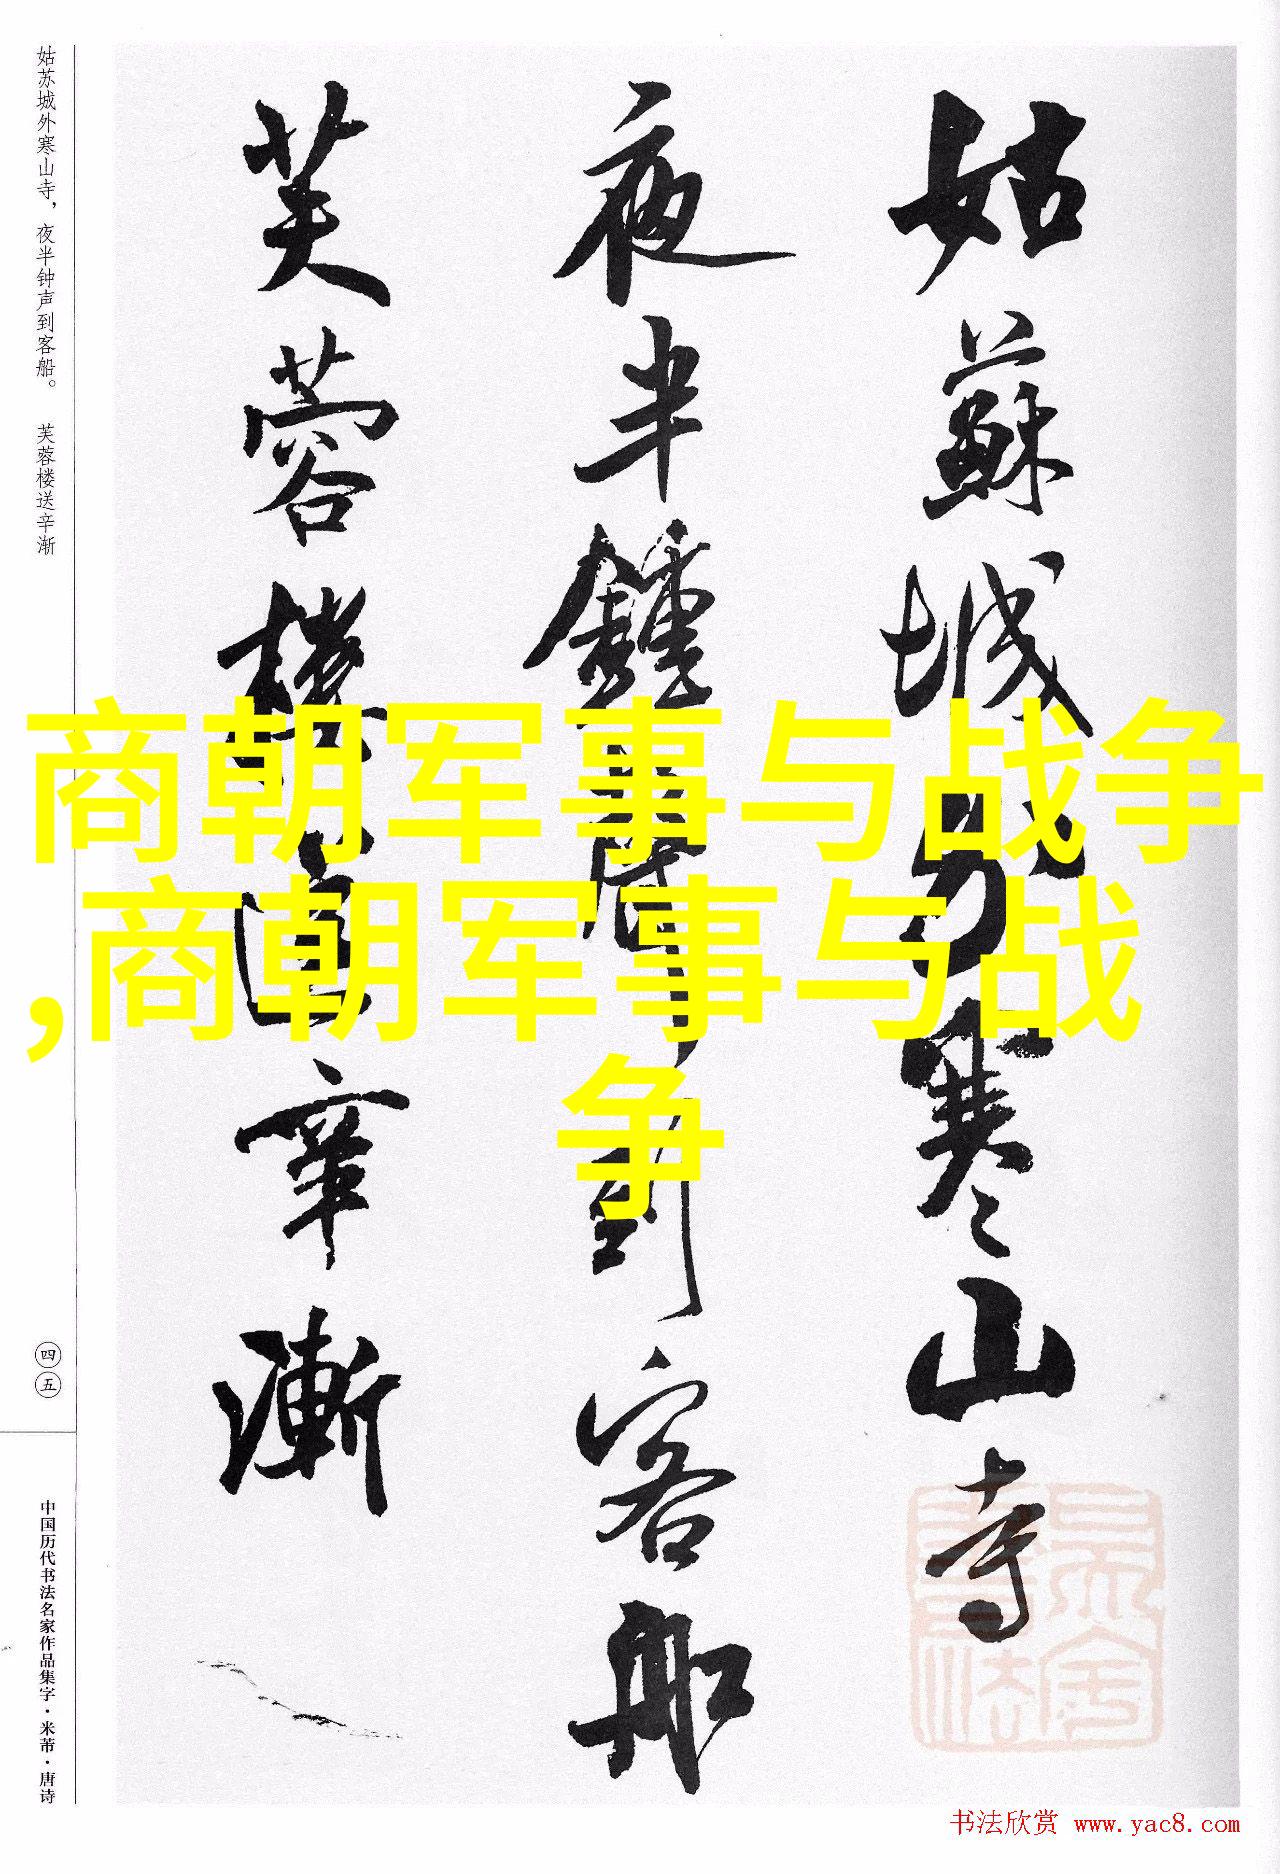 姑苏城外寒山寺，夜半钟声到客船。 芙蓉楼送辛渐
姑蘇城外寒山寺
夜半鍾聲到客船
芙蓉樓送辛漸
商朝军事与战争
,商朝军事与战
争
四五
中国历代书法名家作品集字·米芾·唐诗
书法欣赏 www.yac8.com